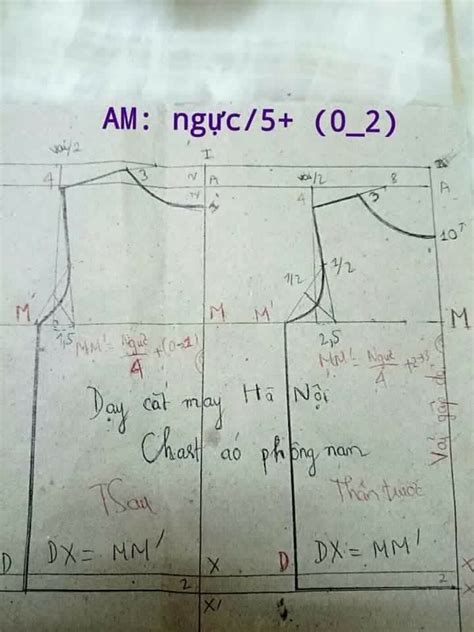 AM: ngực/5+ (0_2)
vai/2
I
vai/2
4
3
2
A
4
3
8
A
10
1/2
1/2
M'
M
M'
M
2
1,5
2,5
MM' = Ngực/4 + (0-1)
MM' = Ngực/4 +2
Dạy cắt may Hà Nội
Chart aó phông nam
Vải gấp đôi
TSau
Thân trước
D
DX = MM'
X
D
DX = MM'
X
2
2
X'